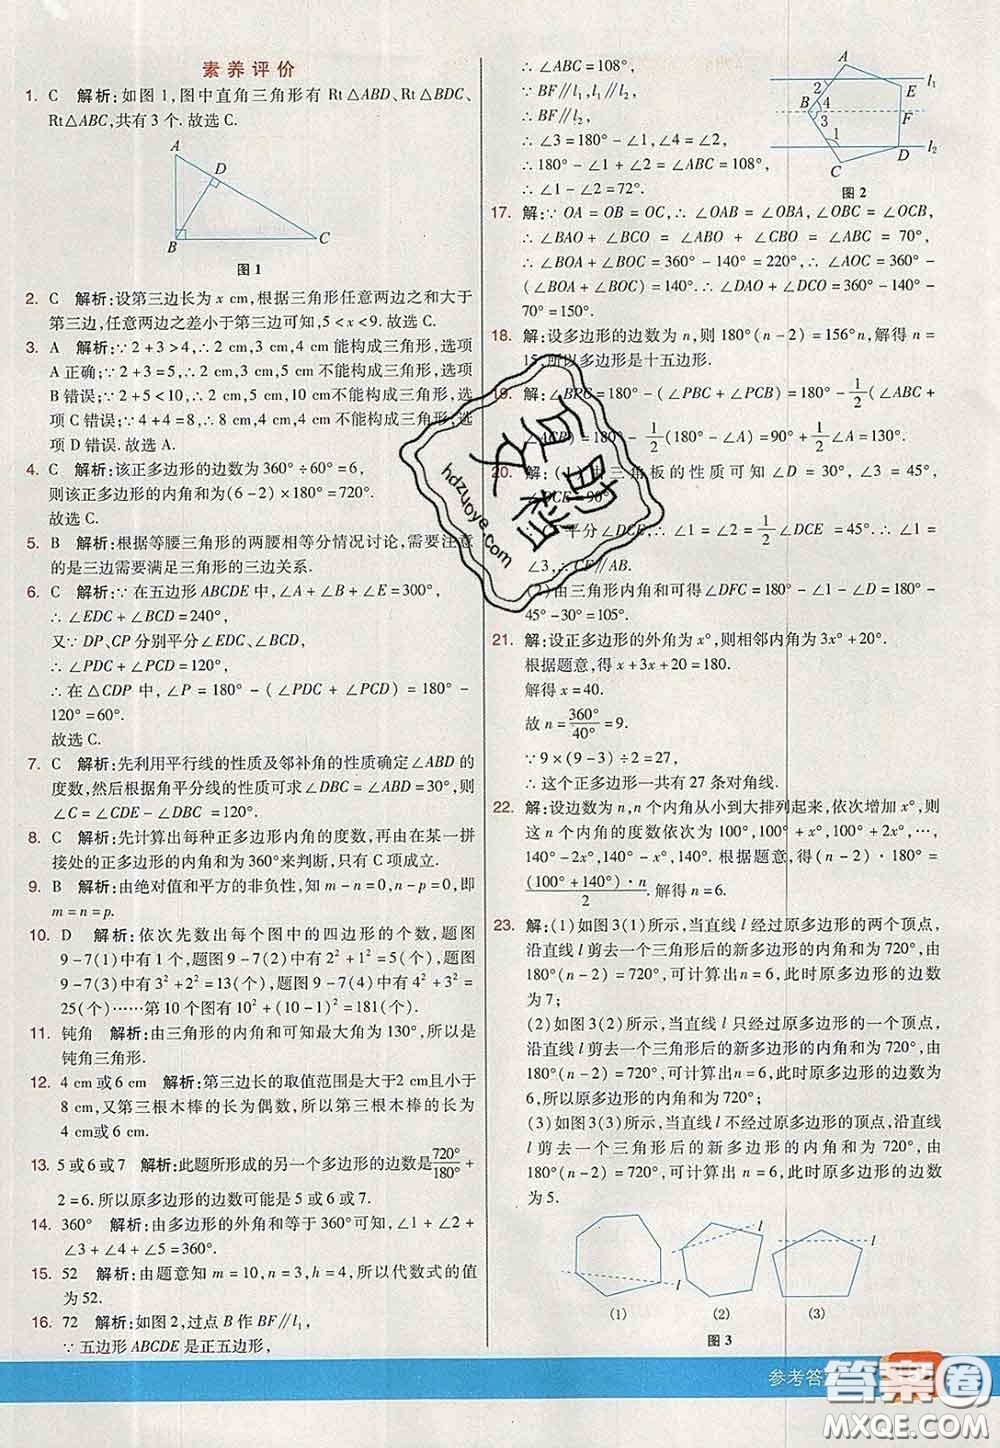 素养评价
1. C 解析:如图1,图中直角三角形有 Rt△ABD、Rt△BDC、
Rt△ABC,共有3个.故选C.
A
D
B
C
图1
2. C 解析:设第三边长为 x cm,根据三角形任意两边之和大于
第三边,任意两边之差小于第三边可知,5<x<9.故选C.
3. A 解析:∵2+3>4,∴2 cm,3 cm,4 cm能构成三角形,选项
A正确;∵2+3=5,∴2 cm,3 cm,5 cm不能构成三角形,选项
B错误;∵2+5<10,∴2 cm,5 cm,10 cm不能构成三角形,选
项C错误;∵4+4=8,∴8 cm,4 cm,4 cm不能构成三角形,选
项D错误.故选A.
4. C 解析:该正多边形的边数为360°÷60°=6,
则该正多边形的内角和为(6-2)×180°=720°.
故选C.
5. B 解析:根据等腰三角形的两腰相等分情况讨论,需要注意
的是三边需要满足三角形的三边关系.
6. C 解析:∵在五边形ABCDE中,∠A+∠B+∠E=300°,
∴∠EDC+∠BCD=240°,
又∵DP、CP分别平分∠EDC、∠BCD,
∴∠PDC+∠PCD=120°,
∴在△CDP中,∠P=180°-(∠PDC+∠PCD)=180°-
120°=60°.
故选C.
7. C 解析:先利用平行线的性质及邻补角的性质确定∠ABD的
度数,然后根据角平分线的性质可求出∠DBC=∠ABD=30°,则
∠C=∠CDE-∠DBC=120°.
8. C 解析:先计算出每种正多边形内角的度数,再由在某一拼
接处的正多边形的内角和为360°来判断,只有C项成立.
9. B 解析:由绝对值和平方的非负性,知m-n=0,n-p=0,即
m=n=p.
10. D 解析:依次先数出每个图中的四边形的个数,题图
9-7(1)中有1个,题图9-7(2)中有2²+1²=5(个),题图
9-7(3)中有3²+2²=13(个),题图9-7(4)中有4²+3²=
25(个)……第10个图有10²+(10-1)²=181(个).
11. 钝角 解析:由三角形的内角和可知最大角为130°,所以是
钝角三角形.
12. 4 cm或6 cm 解析:第三边长的取值范围是大于2 cm且小于
8 cm,又第三根木棒的长为偶数,所以第三根木棒的长为
4 cm或6 cm.
13. 5或6或7 解析:此题所形成的另一个多边形的边数是720°/180°
+2=6.所以原多边形的边数可能是5或6或7.
14. 360° 解析:由多边形的外角和等于360°可知,∠1+∠2+
∠3+∠4+∠5=360°.
15. 52 解析:由题意知m=10,n=3,h=4,所以代数式的值
为52.
16. 72 解析:如图2,过点B作BF∥l₁,
∵五边形ABCDE是正五边形,
∴∠ABC=108°,
∵BF∥l₁,l₁∥l₂,
∴BF∥l₂,
∴∠3=180°-∠1,∠4=∠2,
∴180°-∠1+∠2=∠ABC=108°,
∴∠1-∠2=72°.
A
2
E
l₁
B
4
3
F
1
D
l₂
C
图2
17. 解:∵OA=OB=OC,∴∠BAO=∠OBA,∠OBC=∠OCB,
∴∠BAO+∠BCO=∠ABO+∠CBO=∠ABC=70°,
∴∠BOA+∠BOC=360°-140°=220°,∴∠AOC=360°-
(∠BOA+∠BOC)=140°.∴∠DAO+∠DCO=360°-
∠D-∠AOC=150°.
18. 解:设多边形的边数为n,则180°(n-2)=156°n,解得n=
15,所以多边形是十五边形.
19. 解:∠BPC=180°-(∠PBC+∠PCB)=180°-1/2(∠ABC+
∠ACB)=180°-1/2(180°-∠A)=90°+1/2∠A=130°.
20. 解:(1)由三角板的性质可知∠D=30°,∠3=45°,
∠DCE=90°.
平分∠DCE,∴∠1=∠2=1/2∠DCE=45°,∴∠1=
∠3,∴CF∥AB.
(2)由三角形内角和可得∠DFC=180°-∠1-∠D=180°-
45°-30°=105°.
21. 解:设正多边形的外角为x°,则相邻内角为3x°+20°.
根据题意,得x+3x+20=180.
解得x=40.
故n=360°/40°=9.
∵9×(9-3)÷2=27,
∴这个正多边形一共有27条对角线.
22. 解:设边数为n,n个内角从小到大排列起来,依次增加x°,则
这n个内角的度数依次为100°,100°+x°,100°+2x°,…,
140°-2x°,140°-x°,140°.根据题意,得(n-2)·180°=
(100°+140°)·n/2.解得n=6.
23. 解:(1)如图3(1)所示,当直线l经过原多边形的两个顶点,
沿直线l剪去一个三角形后的新多边形的内角和为720°,由
180°(n-2)=720°,可计算出n=6,此时原多边形的边数
为7;
(2)如图3(2)所示,当直线l只经过原多边形的一个顶点,
沿直线l剪去一个三角形后的新多边形的内角和为720°,由
180°(n-2)=720°,可计算出n=6,此时原多边形的边数
为6;
(3)如图3(3)所示,当直线l不经过原多边形的顶点,沿直线
l剪去一个三角形后的新多边形的内角和为720°,由
180°(n-2)=720°,可计算出n=6,此时原多边形的边数
为5.
l
l
l
(1)
(2)
(3)
图3
hdzuoye.com
参考答
答案圈
MXQE.COM